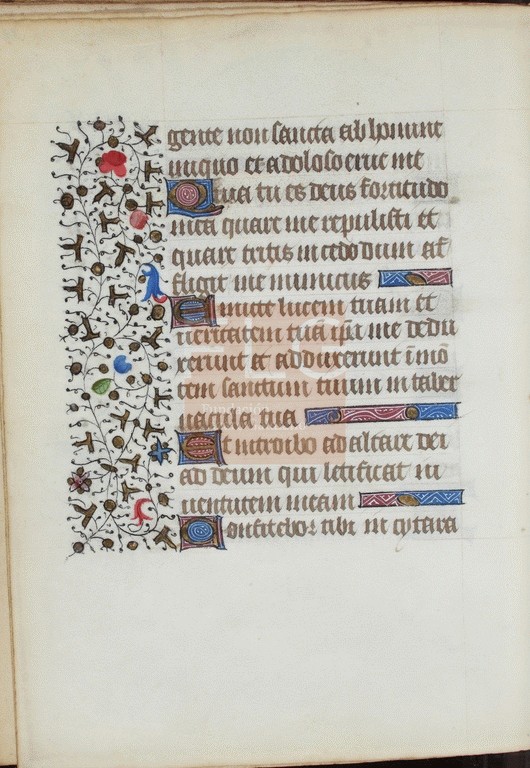 gente non sancta ab homine
iniquo et adoloso erue me
Quia tu es deus fortitudo
mea quare me repulisti et
quare tristis incedo dum af
fligit me inimicus
Emitte lucem tuam et
veritatem tuā ipā me dedu
xerunt et adduxerunt ī mō
tem sanctum tuum in taber
nacula tua
Et introibo ad altare dei
ad deum qui letificat iu
uentutem meam
Confitebor tibi in cytara